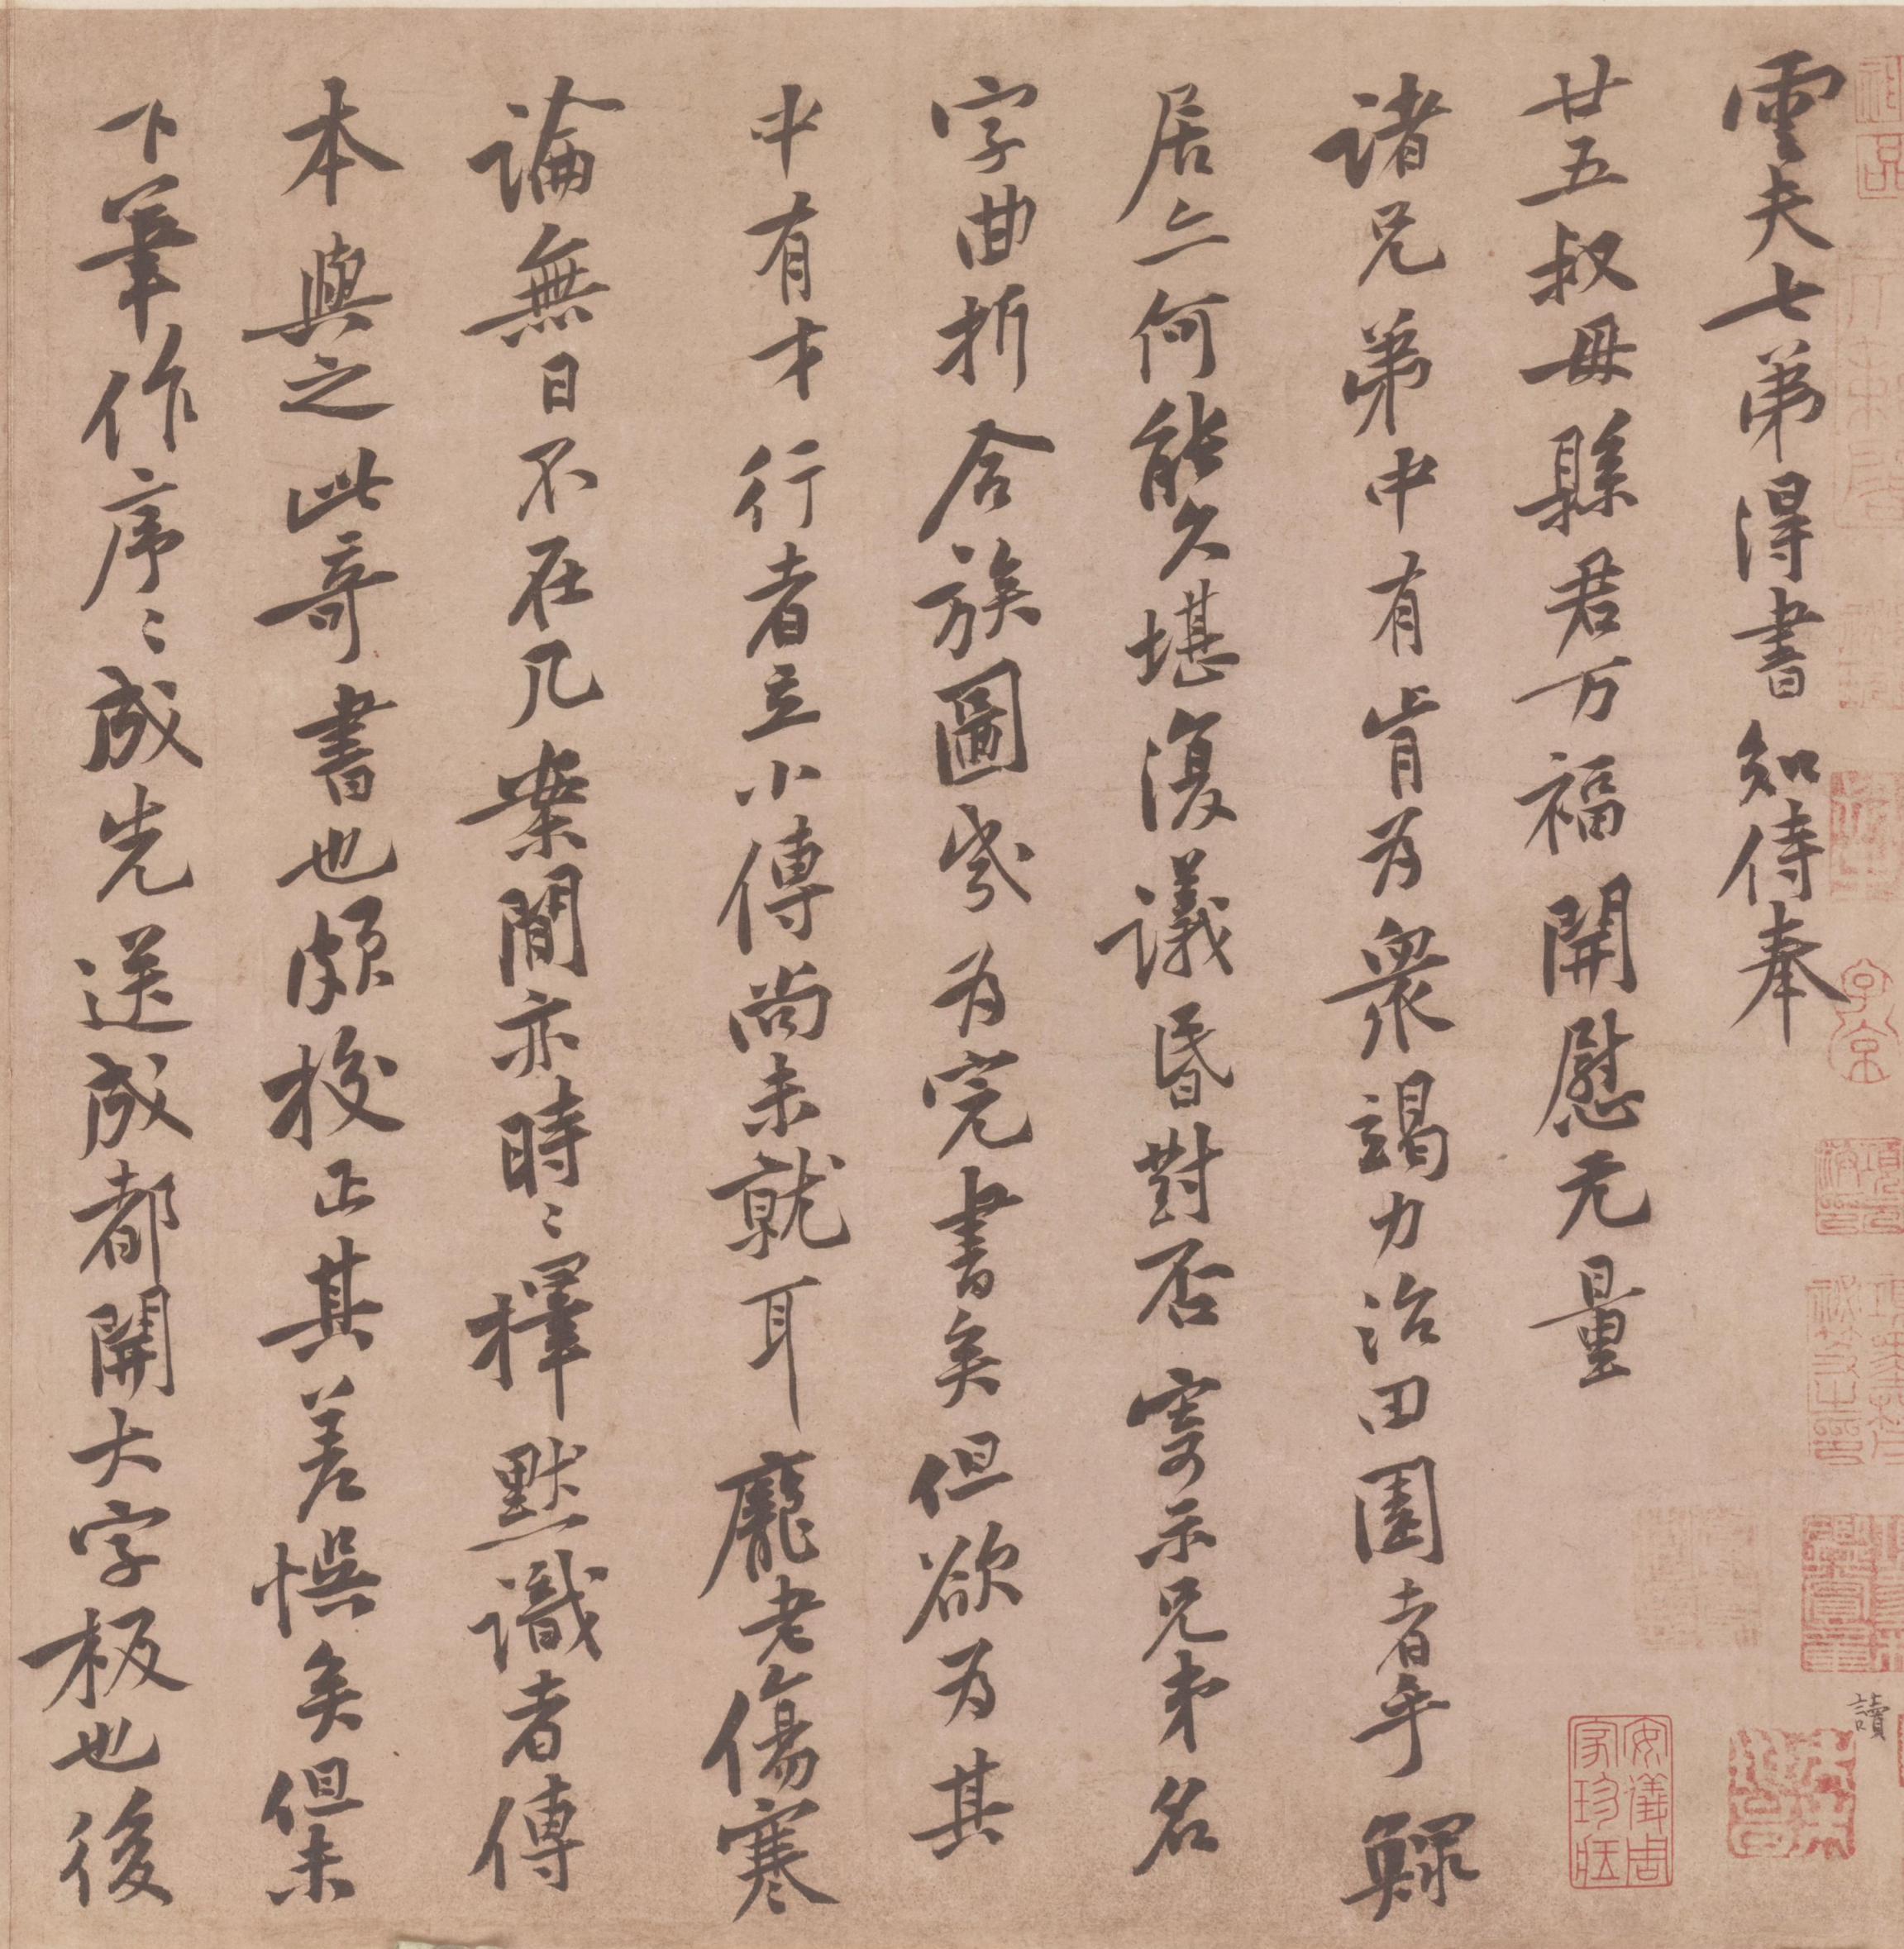 雲夫七弟得書知侍奉
廿五叔母縣君万福開慰无量
諸兄弟中有肯為衆竭力治田園者乎鰥
居亦何能久堪復議昏對否寄示兄弟名
字曲折合族圖岁為完書矣但欲為其
中有才行者立小傳尚未就耳龐老傷寒
論無日不在几案閒亦時〻擇默識者傳
本與之此奇書也頗校正其差悞矣但未
下筆作序〻成先送成都開大字板也後
讀
安儀周家珍藏
子京